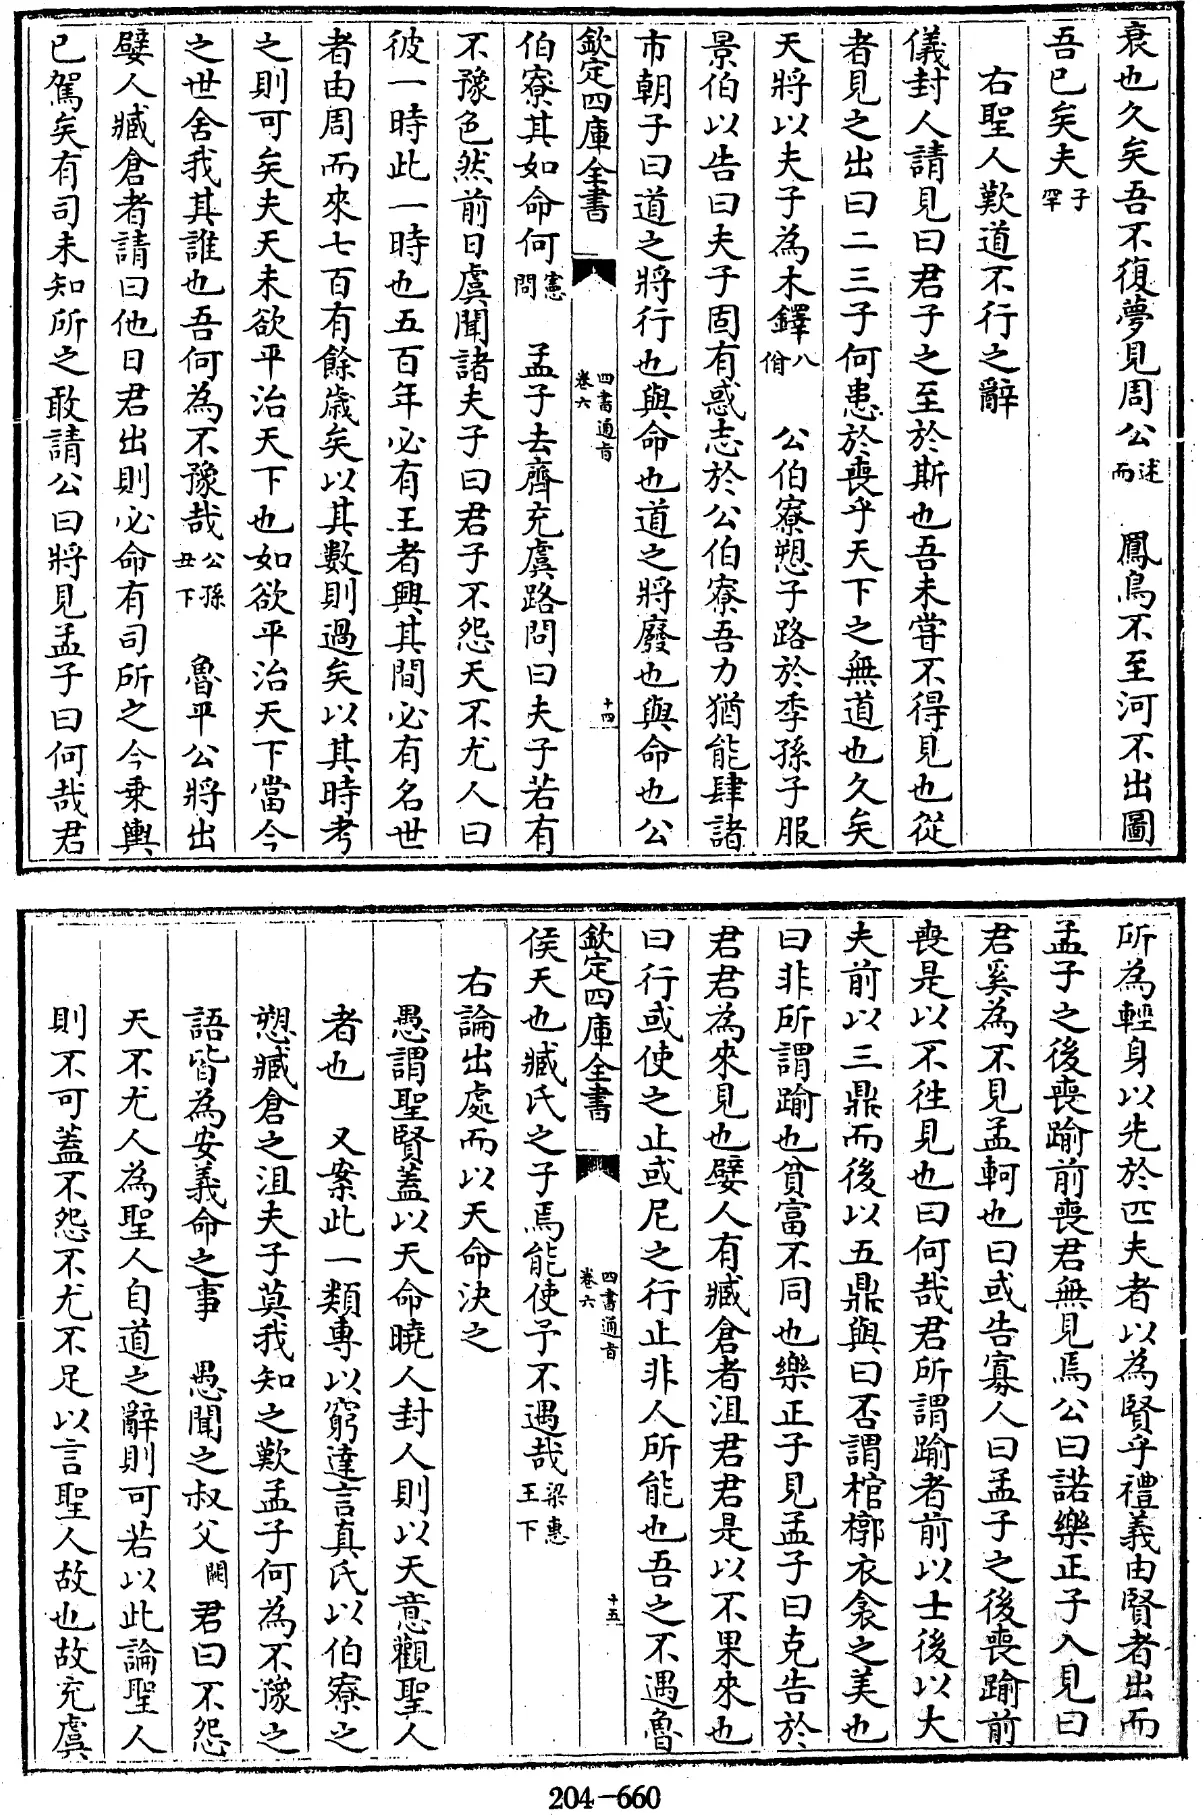 衰也久矣吾不復夢見周公述而　鳳鳥不至河不出圖
吾已矣夫子罕
右聖人歎道不行之辭
儀封人請見曰君子之至於斯也吾未嘗不得見也從
者見之出曰二三子何患於喪乎天下之無道也久矣
天將以夫子為木鐸八佾　公伯寮愬子路於季孫子服
景伯以告曰夫子固有惑志於公伯寮吾力猶能肆諸
市朝子曰道之將行也與命也道之將廢也與命也公
欽定四庫全書　四書通旨卷六　十四
伯寮其如命何憲問　孟子去齊充虞路問曰夫子若有
不豫色然前日虞聞諸夫子曰君子不怨天不尤人曰
彼一時此一時也五百年必有王者興其間必有名世
者由周而來七百有餘歲矣以其數則過矣以其時考
之則可矣夫天未欲平治天下也如欲平治天下當今
之世舍我其誰也吾何為不豫哉公孫丑下　魯平公將出
嬖人臧倉者請曰他日君出則必命有司所之今乗輿
已駕矣有司未知所之敢請公曰將見孟子曰何哉君
所為輕身以先於匹夫者以為賢乎禮義由賢者出而
孟子之後喪踰前喪君無見焉公曰諾樂正子入見曰
君奚為不見孟軻也曰或告寡人曰孟子之後喪踰前
喪是以不徃見也曰何哉君所謂踰者前以士後以大
夫前以三鼎而後以五鼎與曰否謂棺槨衣衾之美也
曰非所謂踰也貧富不同也樂正子見孟子曰克告於
君君為來見也嬖人有臧倉者沮君君是以不果來也
曰行或使之止或尼之行止非人所能也吾之不遇魯
欽定四庫全書　四書通旨卷六　十五
侯天也臧氏之子焉能使予不遇哉梁惠王下
右論出處而以天命決之
愚謂聖賢蓋以天命曉人封人則以天意觀聖人
者也　又案此一類專以窮達言真氏以伯寮之
愬臧倉之沮夫子莫我知之歎孟子何為不豫之
語皆為安義命之事　愚聞之叔父闕君曰不怨
天不尤人為聖人自道之辭則可若以此論聖人
則不可蓋不怨不尤不足以言聖人故也故充虞
204-660